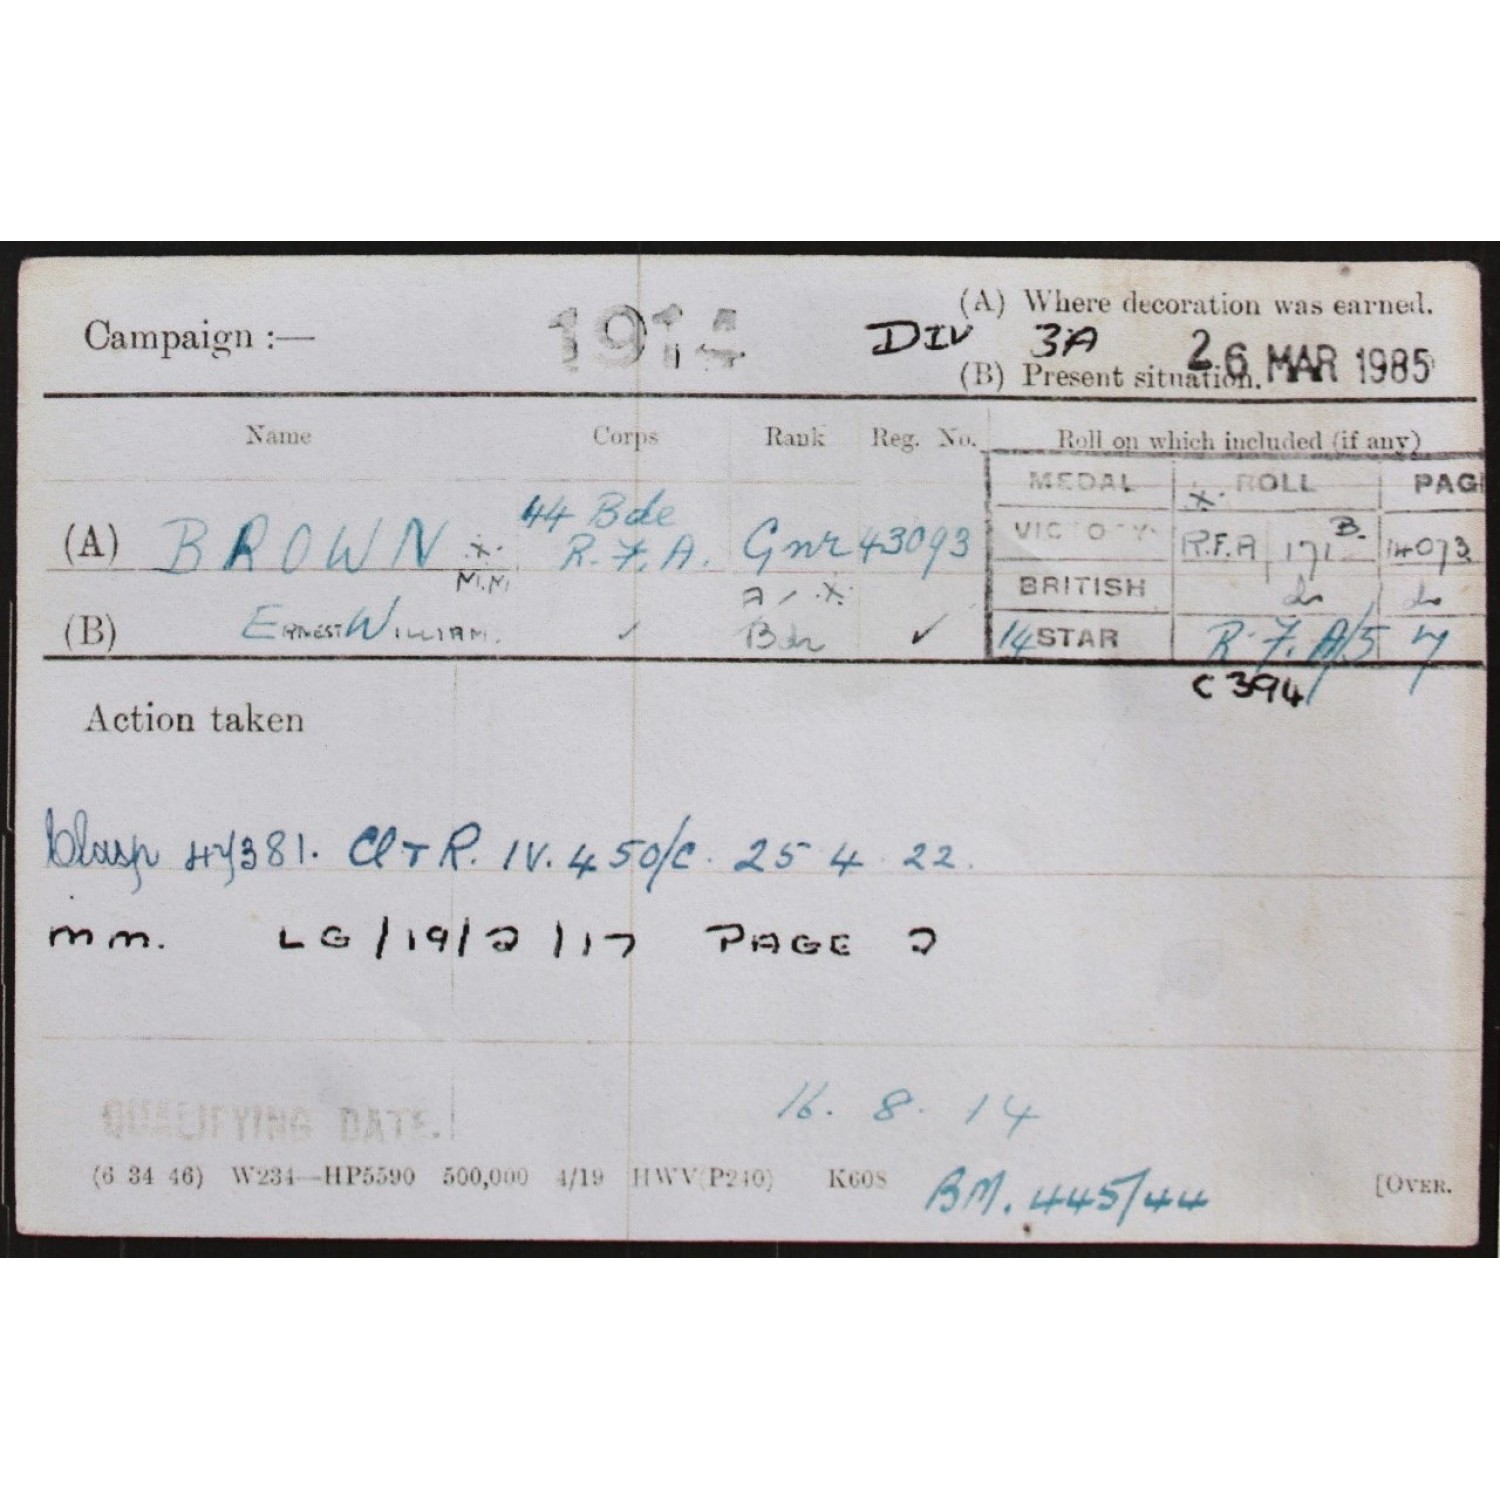 Campaign :— 1914 (A) Where decoration was earned.
DIV 3A 26 MAR 1985
(B) Present situation.
Name Corps Rank Reg. No. Roll on which included (if any)
MEDAL X ROLL PAG
(A) BROWN X 44 Bde R.F.A. Gnr 43093 VICTORY R.F.A 171 B. 14073
M.M. A/ X BRITISH do do
(B) ERNEST WILLIAM. ✓ Bdr ✓ 14 STAR R.F.A/5 7
C394
Action taken
Clasp 47381. Cl & R. IV. 450/C. 25 4 22.
MM. LG/19/2/17 PAGE 2
QUALIFYING DATE. 16. 8. 14
(6 34 46) W234—HP5590 500,000 4/19 HWV(P240) K608 BM. 445/44 [OVER.